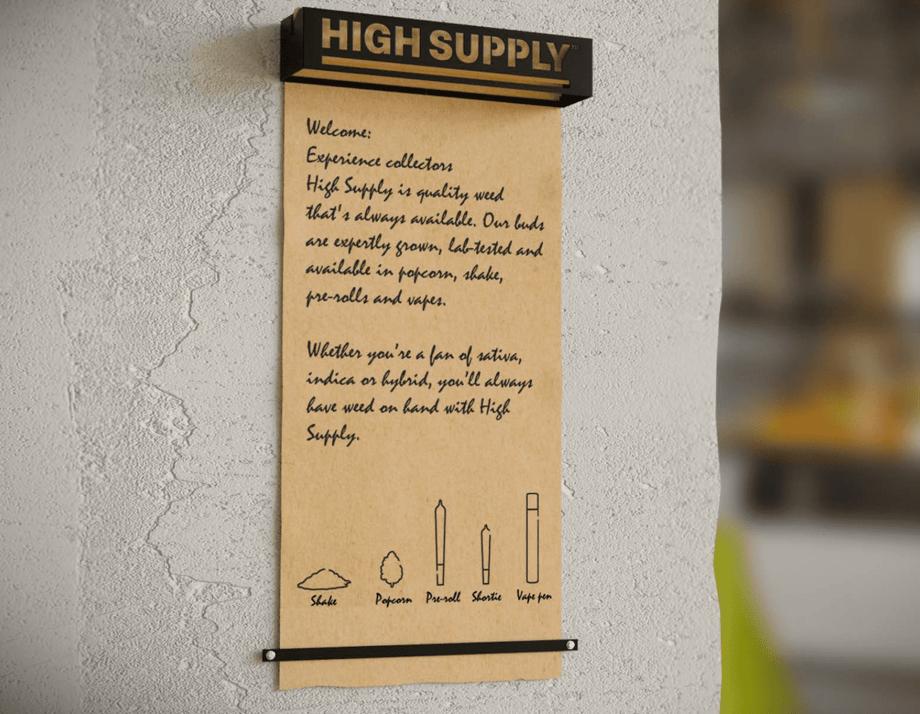 HIGH SUPPLY™
Welcome:
Experience collectors
High Supply is quality weed
that's always available. Our buds
are expertly grown, lab-tested and
available in popcorn, shake,
pre-rolls and vapes.
Whether you're a fan of sativa,
indica or hybrid, you'll always
have weed on hand with High
Supply.
Shake Popcorn Pre-roll Shortie Vape pen